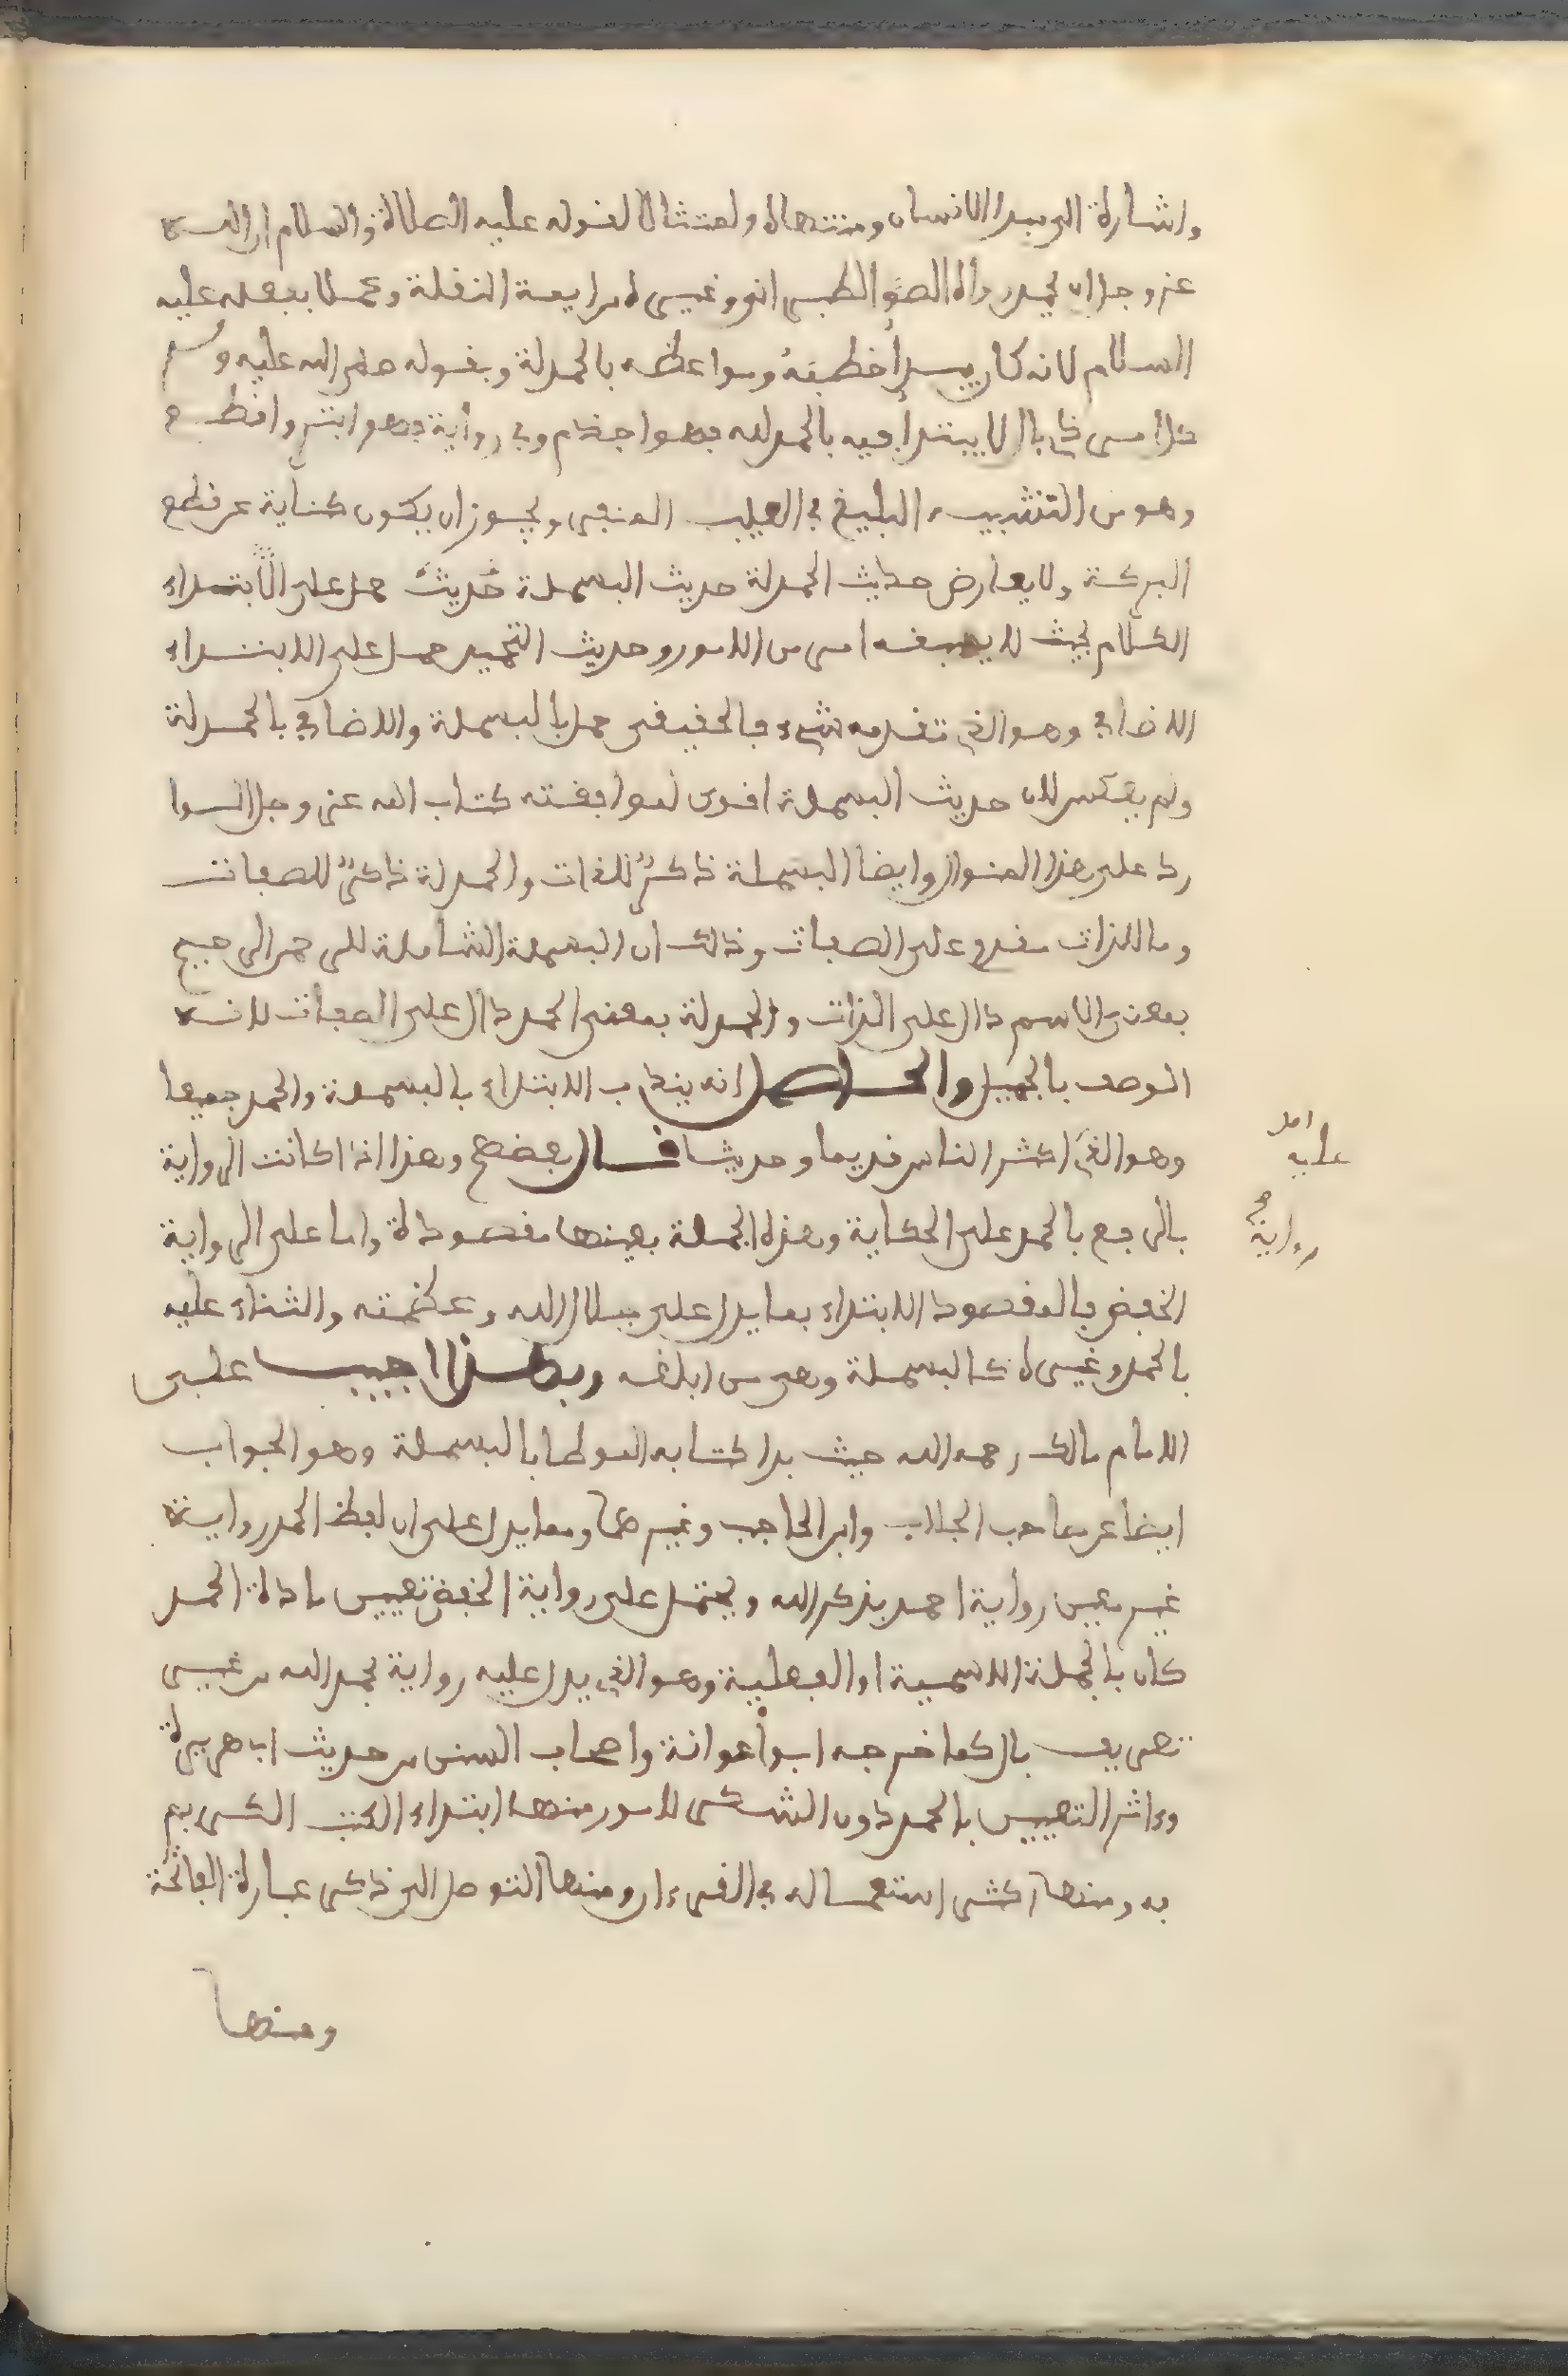 واشارة الى مبدا الانسان ومنتهاه وامتثالا لقوله عليه الصلاة والسلام ان الله
عز وجل ان يحمد رواه الطبراني وغيره من ايمة النقلة وعملا بفعله عليه
السلام لانه كان يبدأ خطبته ومواعظه بالحمدلة وبقوله صلى الله عليه وسلم
كل امر ذي بال لا يبتدأ فيه بالحمد لله فهو اجذم وفي رواية فهو ابتر واقطع
وهو من التشبيه البليغ في العيب المنفر ويجوز ان يكون كناية عن قطع
البركة ولا يعارض حديث الحمدلة حديث البسملة حديث حمل على الابتداء
الكلام بحيث لا يسبقه امر من الامور وحديث التحميد حمل على الابتداء
الاضافي وهو الذي تقدمه شيء فالحقيقي حمل بالبسملة والاضافي بالحمدلة
ولم يعكس لان حديث البسملة اقوى لموافقته كتاب الله عز وجل الوا
رد على هذا المنوال وايضا البسملة ذكر للذات والحمدلة ذكر للصفات
وما للذات مقدم على الصفات وذلك ان البسملة الشاملة للرحمن الرحيم
بمعنى الاسم دال على الذات والحمدلة بمعنى الحمد دال على الصفات لانه
الوصف بالجميل والحاصل انه يندب الابتداء بالبسملة والحمد جميعا
وهو الذي اكثر الناس قديما وحديثا قال بعضهم وهذا اذا كانت الرواية
بالرفع بالحمد على الحكاية وهذه الجملة بعينها مقصودة واما على الرواية
الخفض فالمقصود الابتداء بما يدل على جلال الله وعظمته والثناء عليه
بالحمد وغيره كالبسملة وهي من ابلغه وبهذا اجيب على
الامام مالك رحمه الله حيث بدا كتابه الموطا بالبسملة وهو الجواب
ايضا عن صاحب الجلاب وابن الحاجب وغيرهما ومما يدل على ان لفظ الحمد رواية
غير معين رواية احمد بذكر الله ويحتمل على رواية الخفض تعيين مادة الحمد
كان بالجملة الاسمية او الفعلية وهو الذي يدل عليه رواية بحمد الله من غير
تعريف بال كما خرجه ابو عوانة واصحاب السنن من حديث ابي هريرة
وءاثر التعبير بالحمد دون الشكر لامور منها ابتداء الكتب الكريم
به ومنها كثر استعماله في القرءان ومنها التوصل الى ذكر عبارة الفاتحة
ومنها
امل
عليه
رواية